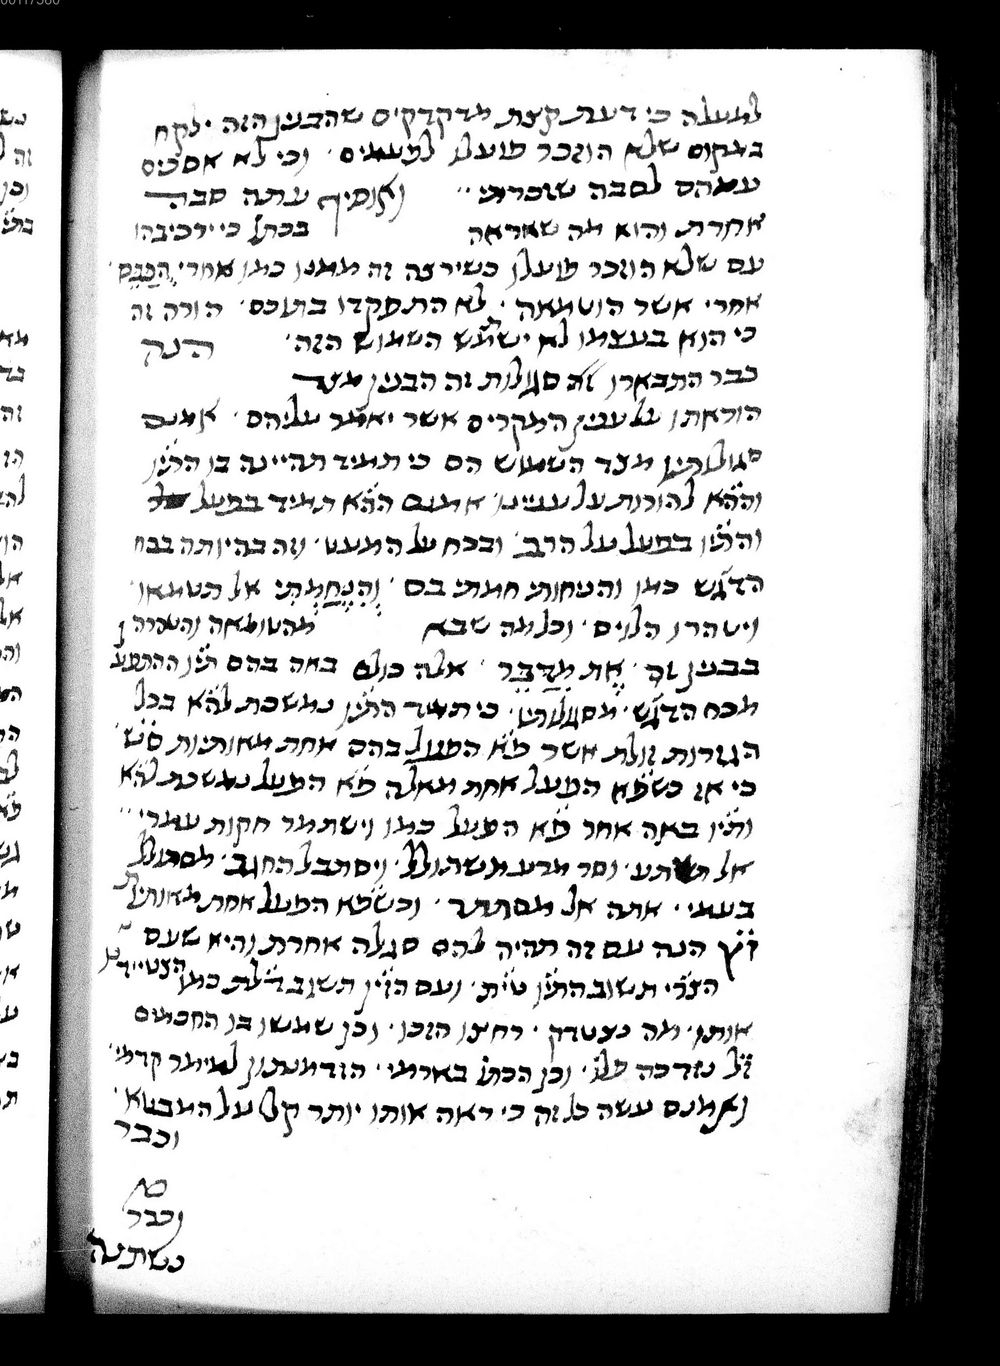 למעלה כי דעת קצת מדקדקים שהבנין הזה ילקח
במקום שלא הוזכר פועלו לפעמים׳ וכי לא אסכים
עמהם לסבה שזכרתי׳׳ ואוסיף עתה סבה
אחרת והוא מה שאראה בכתו׳ כי ירכיבהו
עם שלא הוזכר פועלו כשירצה זה ממנו כמו אחרי הֻכַּבֵּס׳
אחרי אשר הוטמאה׳ לא התפקדו בתוכם׳ הורה זה
כי הוא בעצמו לא ישמש השמוש הזה׳ הנה
כבר התבארו לך סגולות זה הבנין מצד
הוראתו על ענין המקרים אשר יאמר עליהם׳ אמנם
סגולותיו מצד השמוש הם כי תמיד תהיינה בו התי״ו
והה״א להורות על עניינו׳ אמנם הה״א תמיד בפועל
והתי״ו בפועל על הרב׳ ובכח על המעט׳ וזה בהיותה בכח
הדגש כמו והניחותי חמתי בם׳ וְהִנֶּחָמְתִּי אל תטמאו׳
ויטהרו הלוים׳ וכל מה שבא מהטומאה והטהרה
בבנין זה׳ אֶת מִדַּבֵּר׳ אלה כולם באה בהם תי״ו ההתפעל
מכח הדגש׳ מסגולותיו׳ כי תמיד התי״ו נמשכת לה״א בכל
הגזרות זולת אשר פ״א הפועל בהם אחת מאותיות ס״ש׳
כי אז כשפ״א הפועל אחת מאלה פ״א הפועל נמשכת לה״א
ותי״ו באה אחר פ״א הפועל כמו וישתמר חקות עמרי׳׳
אל תשתע׳ וסר מרע משתולל׳ ויסתבל החגב׳ מסתולל
בעמי׳ אתה אל מסתתר׳ וכשפ״א הפועל אחת מאותיות
ז״ץ הנה עם זה תהיה להם סגולה אחרת והיא שעם
הצד״י תשוב התי״ו טי״ת׳ ועם הזי״ן תשוב דל״ת כמו הצטיידנו
אותו׳ מה נצטדק׳ רחצו הזכו׳ וכן שמשו בו החכמים
ז״ל נזדכה פלו׳ וכן הכתו׳ בארמי׳ הזדמנתון למימר קדמי׳
ואמנם עשה כל זה כי ראה אותו יותר קל על המבטא׳
וכבר
וכבר
נשתנה